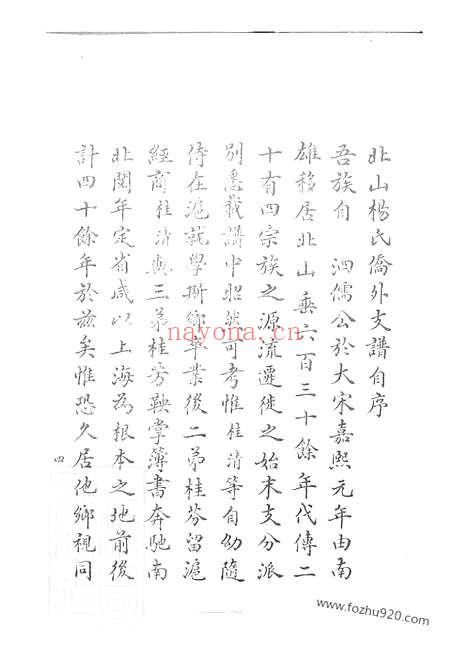 北山楊氏僑外支譜自序
吾族自 泗儒公於大宋嘉熙元年由南
雄移居北山垂六百三十餘年代傳二
十有四宗族之源流遷徙之始末支分派
別悉載譜中昭然可考惟桂清等自幼隨
侍在滬就學斯鄉畢業後二弟桂芬留滬
經商桂清與三弟桂芳鞅掌簿書奔馳南
北閱年定省咸以上海為根本之地前後
計四十餘年於茲矣惟恐久居他鄉視同
四
nayona.cn
www.fozhu920.com